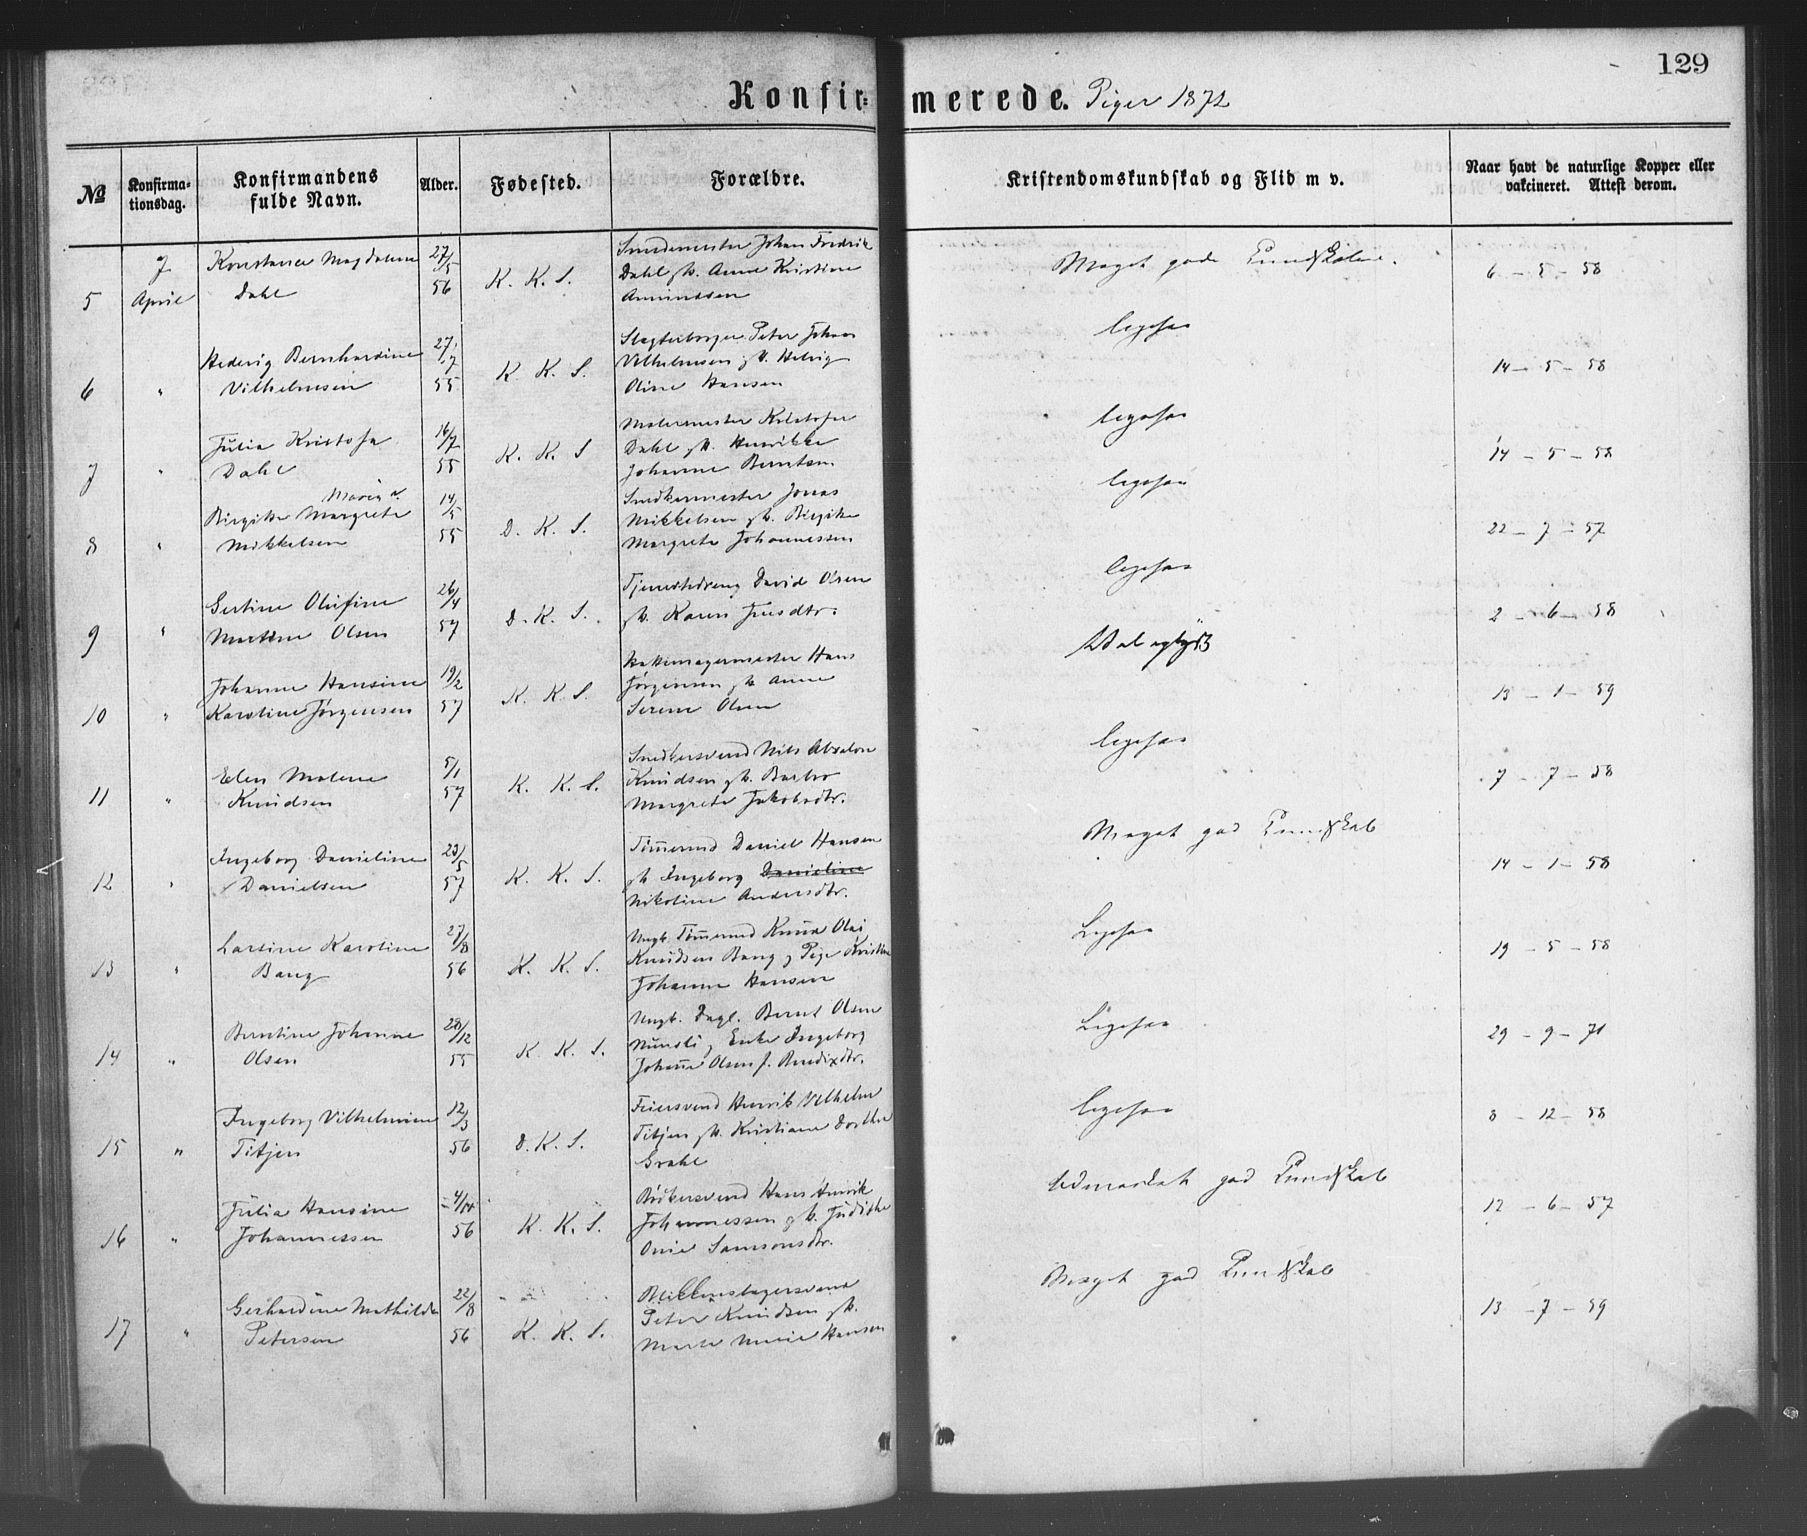 129
Konfirmerede. Piger 1872
No
Konfirma-
tionsdag.
Konfirmandens
fulde Navn.
Alder.
Fødested.
Forældre.
Kristendomskundskab og Flid m v.
Naar havt de naturlige Kopper eller
vakcineret. Attest derom.
5 7 April Konstance Magdalene 27/5 56 K. K. S. Smedemester Johan Fredrik Meget gode Kundskaber. 6 - 5 - 58
Dahl Dahl gh. Anne Kristine
Amundsen
6 " Hedevig Bernhardine 27/7 55 K K. S. Slagterborger Peter Johan ligesaa 14 - 5 - 58
Vilhelmsen Vilhelmsen gh. Helvig
Oline Hansen
7 " Julia Kristofa 16/7 55 K. K. S Malermester Kristofer ligesaa 14 - 5 - 58
Dahl Dahl gh. Henrikke
Johanne Berntsen
8 " Birgitte Maria Margrete 14/5 55 D. K. S. Snedkermester Jonas ligesaa 22 - 7 - 57
Mikkelsen Mikkelsen gh. Birgitte
Margrete Johannessen
9 " Gertine Olufine 26/4 57 D. K. S. Tjenestedreng David Olsen ligesaa 2 - 6 - 58
Martine Olsen gh. Karen Jensdtr.
10 " Johanne Hansine 19/2 57 K. K. S. Hattemagermester Hans 13 - 1 - 59
Karoline Jørgensen Jørgensen gh. Anne
Serene Olsen
11 " Elen Malene 5/1 57 K. K. S. Snedkersvend Nils Absalon ligesaa 7 - 7 - 58
Knudsen Knudsen gh. Barbro
Margrete Jakobsdtr.
12 " Ingeborg Danieline 23/5 57 K. K. S. Tømmermd Daniel Hansen Meget god Kundskab 14 - 1 - 58
Danielsen gh Ingeborg Danieline
Nikoline Andersdtr.
13 " Larsine Karoline 27/8 56 K. K. S. Ungk. Tømmermd Knud Olai Ligesaa 19 - 5 - 58
Bang Knudsen Bang og Pige Kristine
Johanne Hansen
14 " Berntine Johanne 28/12 55 K K. S. Ungk. Dagl. Bernt Olsen Ligesaa 29 - 9 - 71
Olsen og Enke Ingeborg
Johanne Olsen f. Bendixdtr.
15 " Ingeborg Vilhelmine 12/3 56 D. K. S. Feiersvend Henrik Vilhelm ligesaa 8 - 12 - 58
Titjen Titjen gh. Kristiane Dorthe
Grahl
16 " Julia Hansine 4/11 56 K K. S. Bødkersvend Hans Henrik Udmærket god Kundskab 12 - 6 - 57
Johannessen Johannessen gh. Judithe
Onie Samsonsdtr.
17 " Gerhardine Mathilde 22/8 56 K. K. S. Blikkenslagersvend Meget god Kundskab 13 - 7 - 59
Petersen Peter Knudsen gh.
Marte Marie Hansen